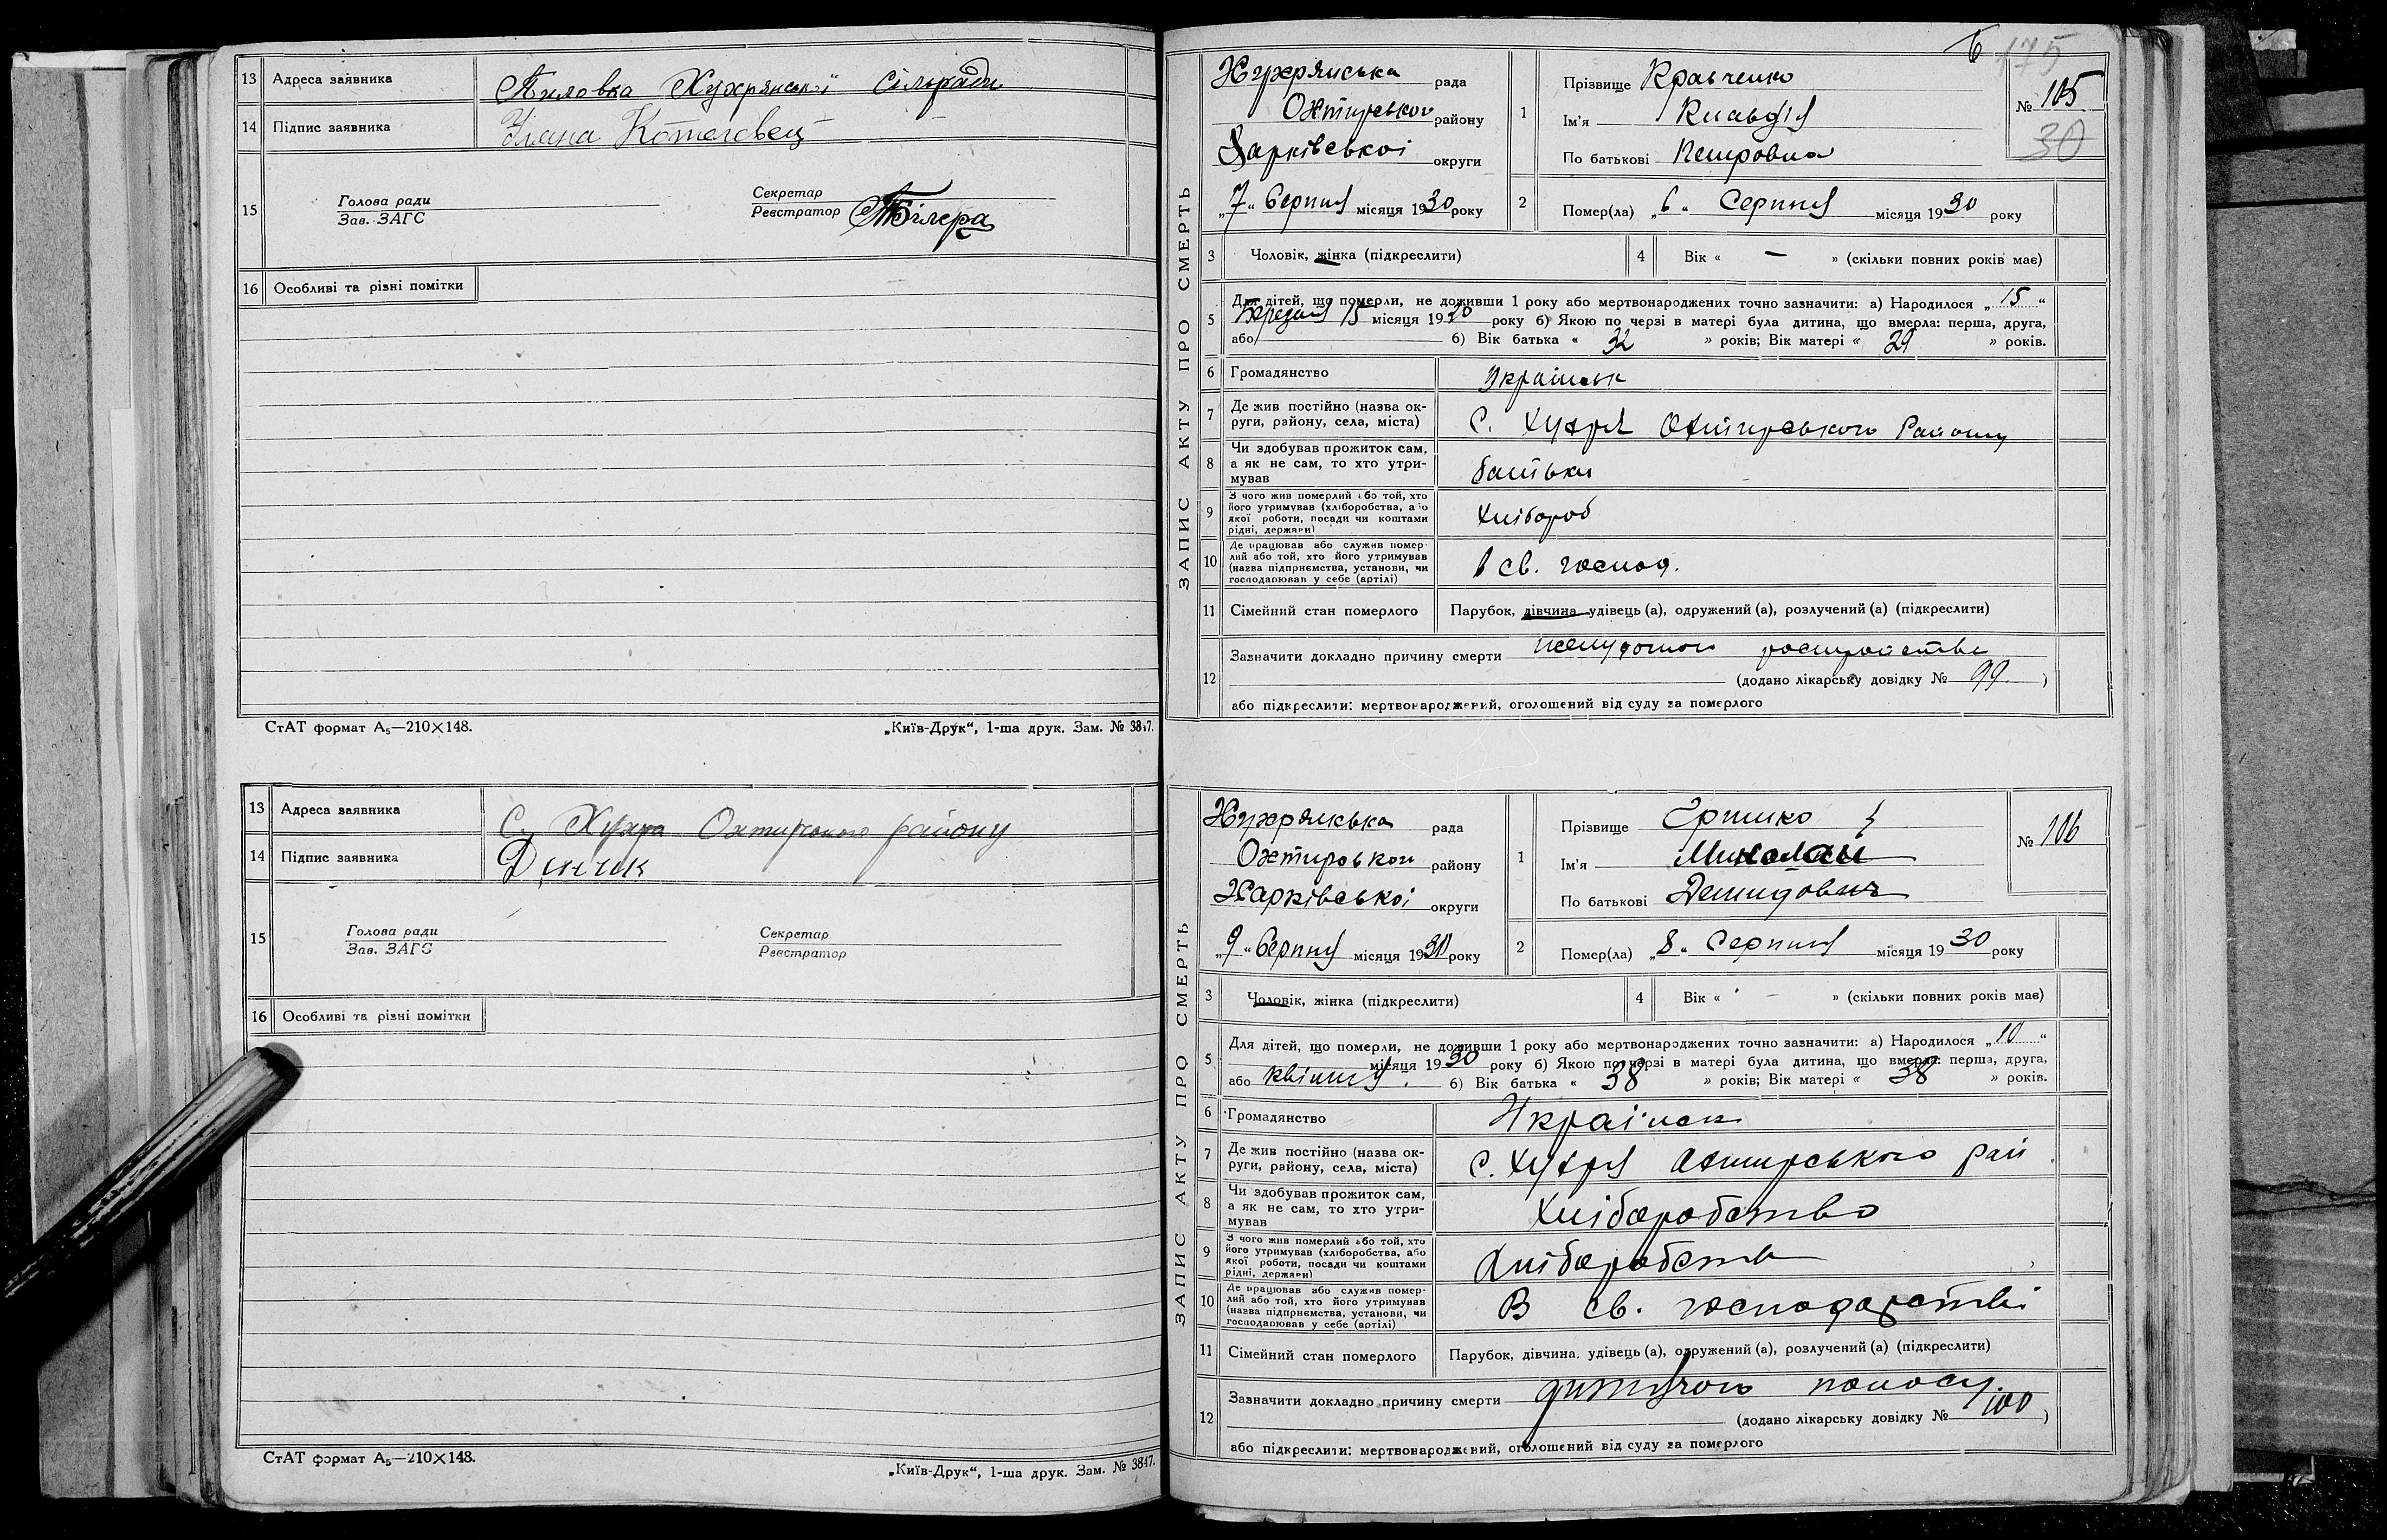 13 Адреса заявника Пиловка Хухрянської Сільради
14 Підпис заявника Уляна
15 Голова ради
Зав. ЗАГС
Секретар
Реєстратор
16 Особливі та різні помітки
СтАТ формат А₅—210×148.
„Київ-Друк“, 1-ша друк. Зам. № 3847.
13 Адреса заявника С. Хухра Охтирського району
14 Підпис заявника
15 Голова ради
Зав. ЗАГС
Секретар
Реєстратор
16 Особливі та різні помітки
СтАТ формат А₅—210×148.
„Київ-Друк“, 1-ша друк. Зам. № 3847.
175
ЗАПИС АКТУ ПРО СМЕРТЬ
Хухрянська рада
Охтирської району
Харківської округи
„7“ Серпня місяця 1930 року
1 Прізвище Кравченко
Ім'я Клавдія
По батькові Петровна
№ 105
30
2 Помер(ла) „6“ Серпня місяця 1930 року
3 Чоловік, жінка (підкреслити)
4 Вік « — » (скільки повних років має)
5 Для дітей, що померли, не доживши 1 року або мертвонароджених точно зазначити: а) Народилося „15“
15 місяця 1930 року б) Якою по черзі в матері була дитина, що вмерла: перша, друга,
або б) Вік батька « 32 » років; Вік матері « 29 » років.
6 Громадянство Українськ
7 Де жив постійно (назва округи, району, села, міста) С. Хухря Охтирського Району
8 Чи здобував прожиток сам, а як не сам, то хто утримував батьки
9 З чого жив померлий або той, хто його утримував (хліборобства, або якої роботи, посади чи коштами рідні, держави) Хлібороб
10 Де працював або служив померлий або той, хто його утримував (назва підприємства, установи, чи господарював у себе (артілі) в св. господ.
11 Сімейний стан померлого Парубок, дівчина, удівець (а), одружений (а), розлучений (а) (підкреслити)
12 Зазначити докладно причину смерти
(додано лікарську довідку № 99 )
або підкреслити: мертвонароджений, оголошений від суду за померлого
ЗАПИС АКТУ ПРО СМЕРТЬ
Хухрянська рада
Охтирської району
Харківської округи
„9“ Серпня місяця 1930 року
1 Прізвище
Ім'я Миколай
По батькові Демидович
№ 106
2 Помер(ла) „8“ Серпня місяця 1930 року
3 Чоловік, жінка (підкреслити)
4 Вік « — » (скільки повних років має)
5 Для дітей, що померли, не доживши 1 року або мертвонароджених точно зазначити: а) Народилося „10“
місяця 1930 року б) Якою по черзі в матері була дитина, що вмерла: перша, друга,
або квітня б) Вік батька « 38 » років; Вік матері « 38 » років.
6 Громадянство Українськ
7 Де жив постійно (назва округи, району, села, міста) С. Хухря Охтирського рай
8 Чи здобував прожиток сам, а як не сам, то хто утримував Хліборобство
9 З чого жив померлий або той, хто його утримував (хліборобства, або якої роботи, посади чи коштами рідні, держави) Хліборобств
10 Де працював або служив померлий або той, хто його утримував (назва підприємства, установи, чи господарював у себе (артілі) В св. господарстві
11 Сімейний стан померлого Парубок, дівчина, удівець (а), одружений (а), розлучений (а) (підкреслити)
12 Зазначити докладно причину смерти дитячого поносу
(додано лікарську довідку № 100 )
або підкреслити: мертвонароджений, оголошений від суду за померлого